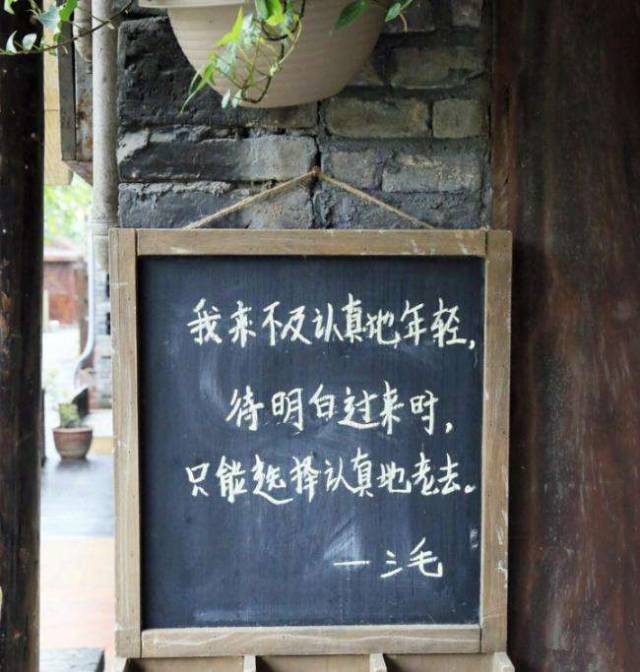 我来不及认真地年轻，
待明白过来时，
只能选择认真地老去。
—三毛